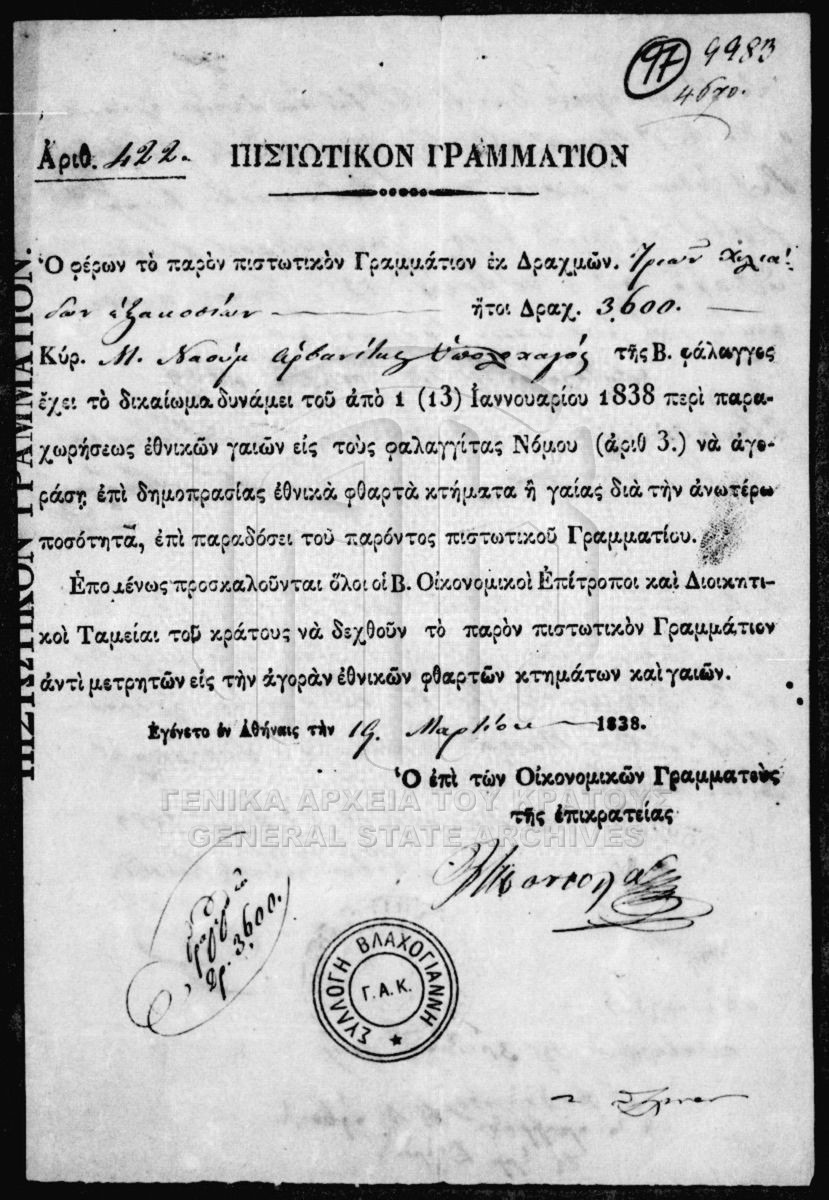 97 9983
4670.
Ἀριθ. 422. ΠΙΣΤΩΤΙΚΟΝ ΓΡΑΜΜΑΤΙΟΝ
ΠΙΣΤΩΤΙΚΟΝ ΓΡΑΜΜΑΤΙΟΝ.
Ὁ φέρων τὸ παρὸν πιστωτικὸν Γραμμάτιον ἐκ Δραχμῶν. Τριῶν χιλιά-
δων ἑξακοσίων ἤτοι Δραχ. 3,600.
Κύρ. Μ. Ναοὺμ Ἀρβανίτης Ὑπολοχαγός τῆς Β. φάλαγγος
ἔχει τὸ δικαίωμα δυνάμει τοῦ ἀπὸ 1 (13) Ιαννουαρίου 1838 περὶ παρα-
χωρήσεως ἐθνικῶν γαιῶν εἰς τοὺς φαλαγγίτας Νόμου (ἀριθ 3.) νὰ ἀγο-
ράσῃ ἐπὶ δημοπρασίας ἐθνικὰ φθαρτὰ κτήματα ἢ γαίας διὰ τὴν ἀνωτέρω
ποσότητα, ἐπὶ παραδόσει τοῦ παρόντος πιστωτικοῦ Γραμματίου.
Ἑπομένως προσκαλοῦνται ὅλοι οἱ Β. Οἰκονομικοὶ Ἐπίτροποι καὶ Διοικητι-
κοὶ Ταμείαι τοῦ κράτους νὰ δεχθοῦν τὸ παρὸν πιστωτικὸν Γραμμάτιον
ἀντὶ μετρητῶν εἰς τὴν ἀγορὰν ἐθνικῶν φθαρτῶν κτημάτων καὶ γαιῶν.
Ἐγένετο ἐν Ἀθήναις τὴν 19 Μαρτίου 1838.
Ὁ ἐπὶ τῶν Οἰκονομικῶν Γραμματεὺς
τῆς ἐπικρατείας
ΓΕΝΙΚΑ ΑΡΧΕΙΑ ΤΟΥ ΚΡΑΤΟΥΣ
GENERAL STATE ARCHIVES
Δρ. 3,600.
ΣΥΛΛΟΓΗ ΒΛΑΧΟΓΙΑΝΝΗ
Γ.Α.Κ.